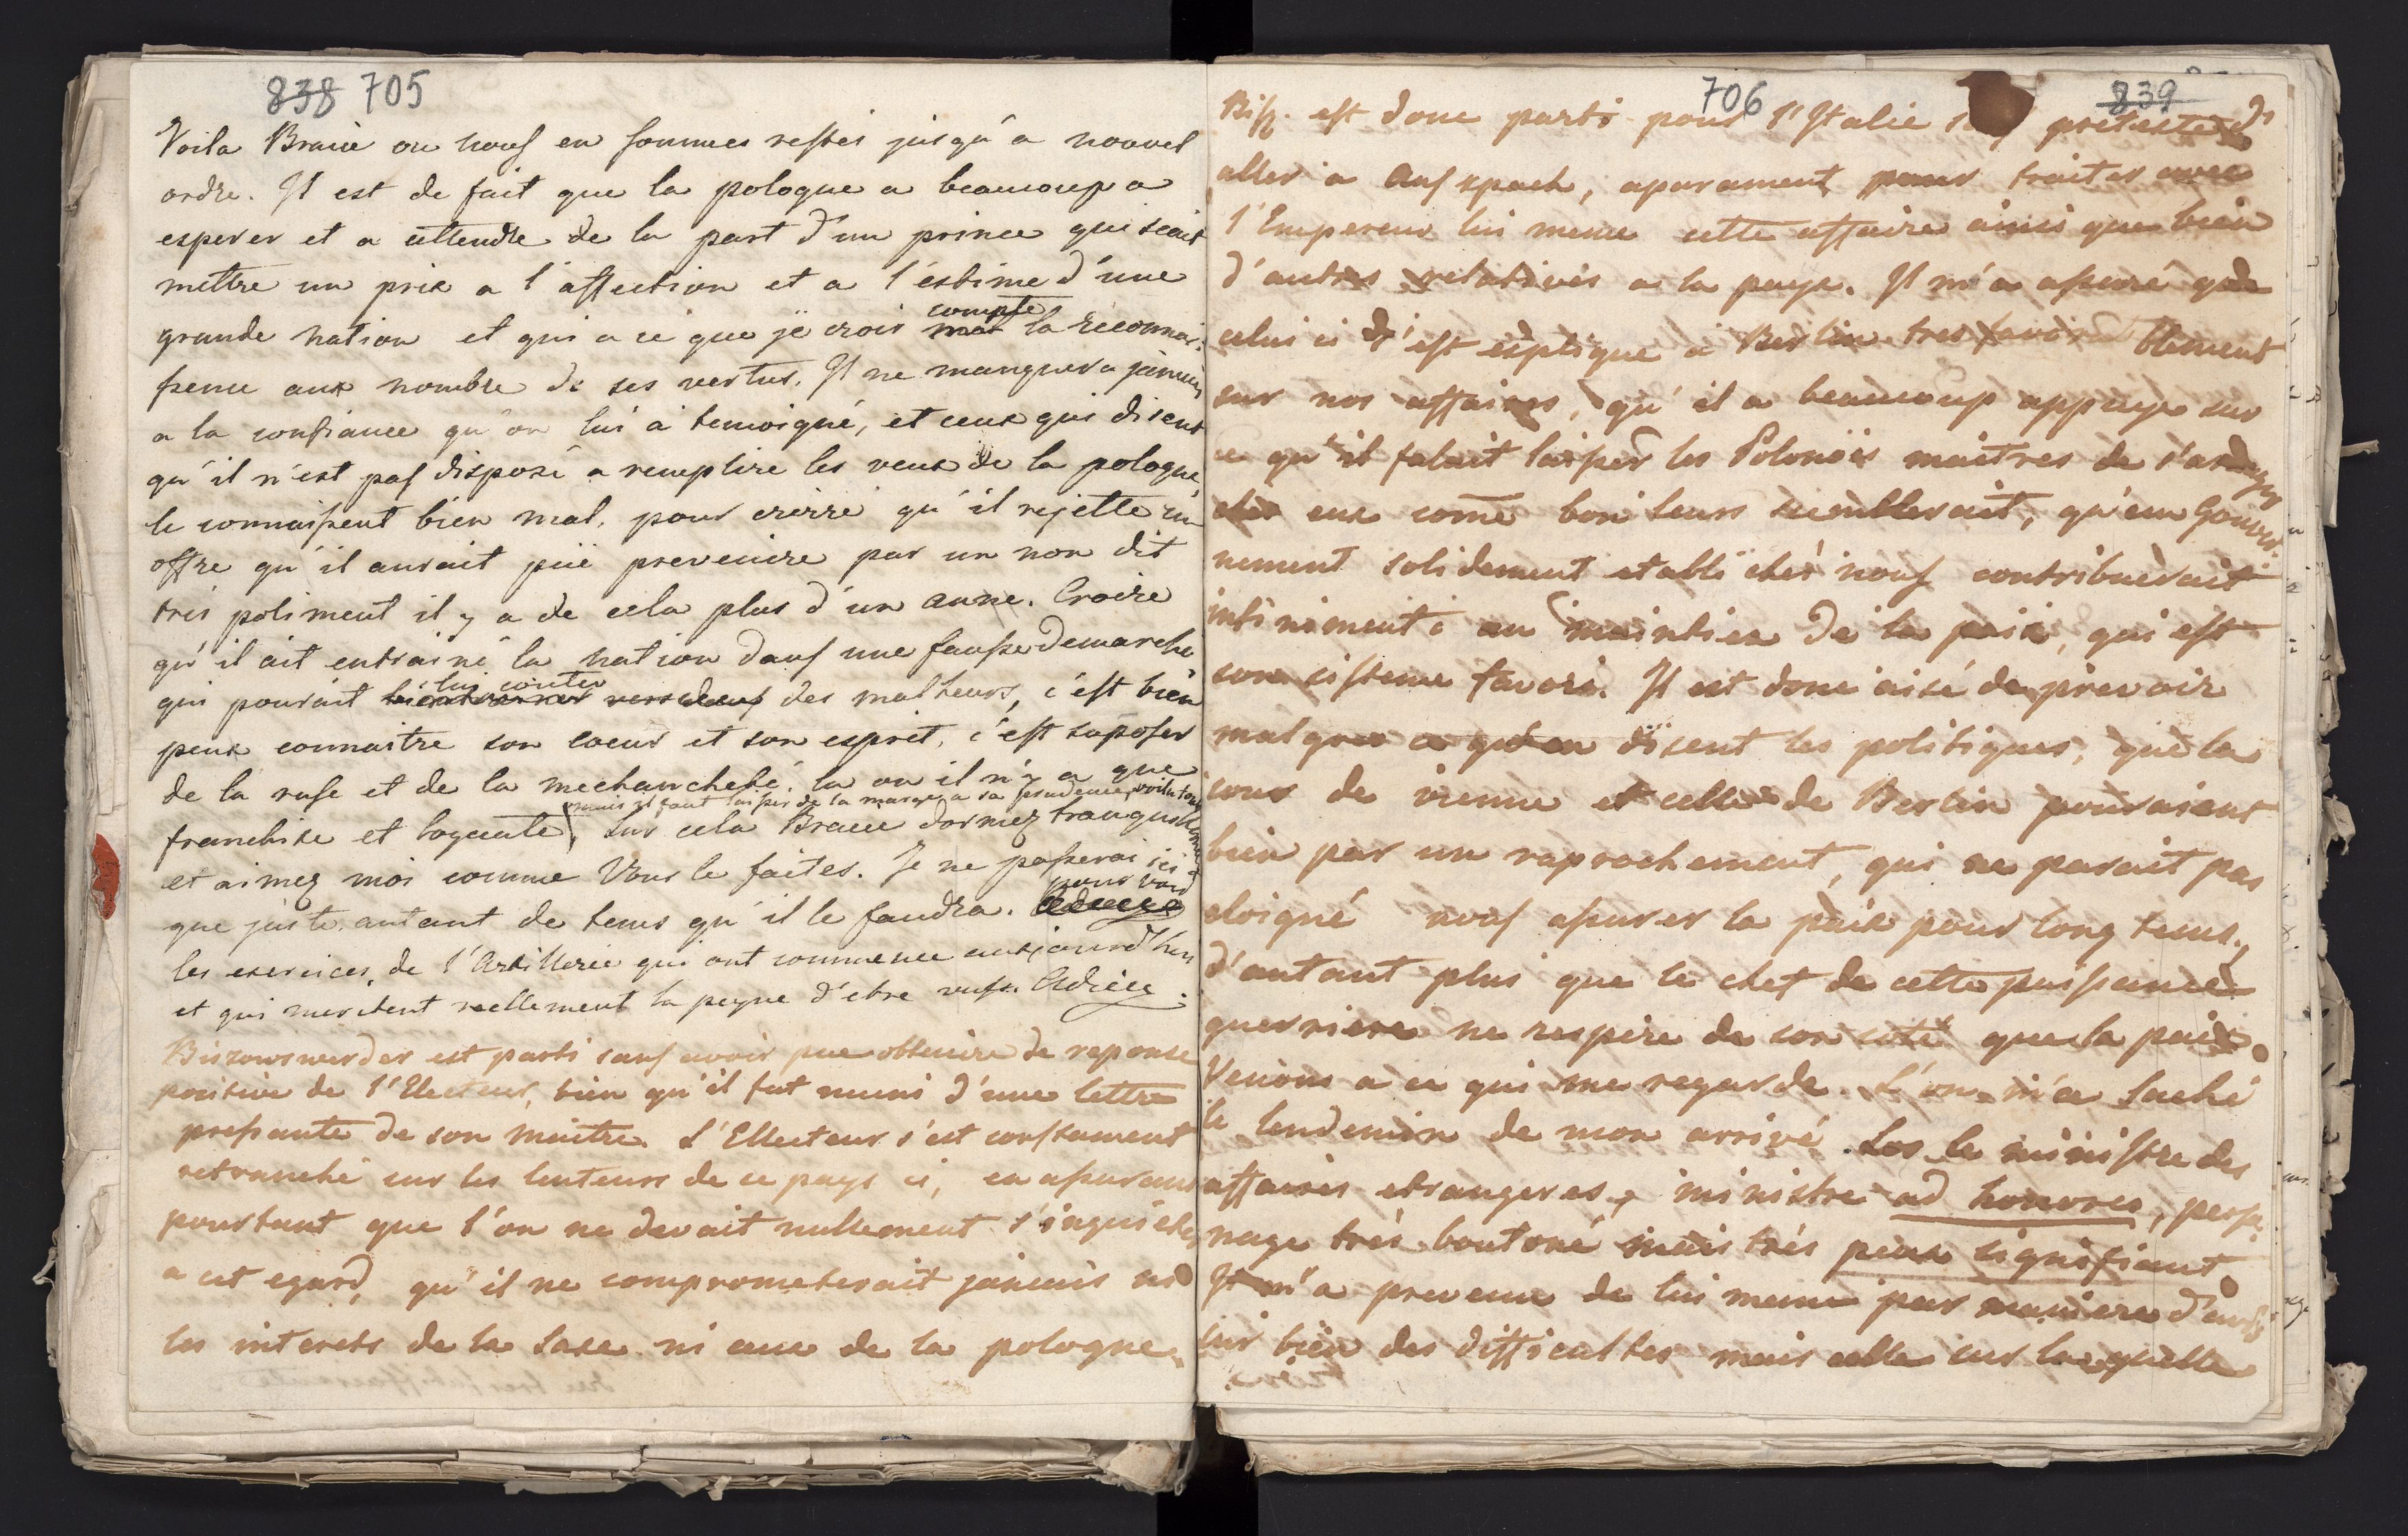 838 705
Voila Braneè ou nous en sommes restés jusqu'a nouvel
ordre. Il est de fait que la pologne a beaucoup a
esperer et a attendre de la part d'un prince qui scait
mettre un prix a l'affection et a l'estime d'une
grande nation et qui a ce que je crois mat compte la reconnai:
ssence aux nombre de ses vertus. Il ne manquera jamais
a la confiance qu'on lui à temoigné, et ceux qui disent
qu'il n'est pas disposé a remplire les veux de la pologne
le connaissent bien mal, pour croire qu'il rejette un
offre qu'il aurait püe prevenire par un non dit
trés poliment il y a de cela plus d'un anne. Croire
qu'il ait entrainé la nation dans une fausse demarche
qui pourait lui conter des malheurs, c'est bien
peux connaitre son coeur et son esprit, c'est suposer
de la ruse et de la mechancheté, la ou il n'y a que
franchise et loyauté, mais il faut laisser de la marge a sa prudence, voila tout
Sur cela Braneè dormez tranquillement
et aimez moi comme Vous le faites. Je ne passerai ici
que juste autant de tems qu'il le faudra. pour voir
les exercices de l'Artillerie qui ont commence aujourd'hui
et qui meritent reellement la peyne d'etre vuse. Adieu.
Bischowswerder est parti sans avoir pue obtenire de reponse
positive de l'Electeur, bien qu'il fut muni d'une lettre
pressante de son maitre. L'Ellecteur s'est constament
retranché sur les lenteurs de ce pays ci, en assurant
pourtant que l'on ne devait nullement s'inquieter
a cet egard, qu'il ne comprometerait jamais ni
les interets de la Saxe ni ceux de la pologne.
706 839
Biss. est donc parti pour l'Italie sous pretexte d'
aller a Anspach, aparament pour traiter avec
l'Empereur lui meme cette affaire ainsi que bien
d'autres relativés a la paye. Il m'a assuré que
celui ci s'est explique a Berlin tres favorablement
sur nos affaires, qu'il a beaucoup appuye sur
ce qu'il falait laisser les Polonois maitres de s'aranger
chez eux come bon leurs semblerait, qu'un Gouver:
nement solidement etabli chés nous contribuerait
infiniment au maintien de la paix, qui est
son sisteme favori. Il est donc aisé de prevoir
malgree ce qu'en disent les politiques, que la
cour de vienne et celle de Berlin pouraient
bien par un raprochement, qui ne parait pas
eloigné nous assurer la paix pour long tems,
d'autant plus que le chef de cette puissance
guerriere ne respire de son coté que la paix.
Venons a ce qui me regarde. L'on m'a laché
le lendemin de mon arrivé Los le ministre des
affaires etrangeres, ministre ad honores, perso:
nage trés boutoné mais trés peux signifiant
Il m'a prevenu de lui meme par maniere d'
sur bien des difficultes mais celle sur laquelle